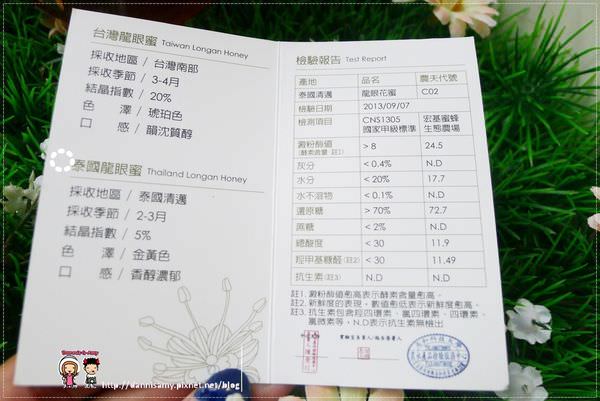 台灣龍眼蜜 Taiwan Longan Honey
採收地區 / 台灣南部
採收季節 / 3-4月
結晶指數 / 20%
色　　澤 / 琥珀色
口　　感 / 韻沈質醇
泰國龍眼蜜 Thailand Longan Honey
採收地區 / 泰國清邁
採收季節 / 2-3月
結晶指數 / 5%
色　　澤 / 金黃色
口　　感 / 香醇濃郁
檢驗報告 Test Report
產地 品名 農夫代號
泰國清邁 龍眼花蜜 C02
檢驗日期 2013/09/07
檢測項目 CNS1305 國家甲級標準 宏基蜜蜂生態農場
澱粉酶值 (酵素含量 註1) > 8 24.5
灰分 < 0.4% N.D
水分 < 20% 17.7
水不溶物 < 0.1% N.D
還原糖 > 70% 72.7
蔗糖 < 2% N.D
總酸度 < 30 11.9
羥甲基糠醛 (註2) < 30 11.49
抗生素 (註3) N.D N.D
註1. 澱粉酶值愈高表示酵素含量愈高。
註2. 新鮮度的表現，數值愈低表示新鮮度愈高。
註3. 抗生素包含羥四環素、氯四環素、四環素
等，N.D表示抗生素無檢出
http://dannisamy.pixnet.net/blog